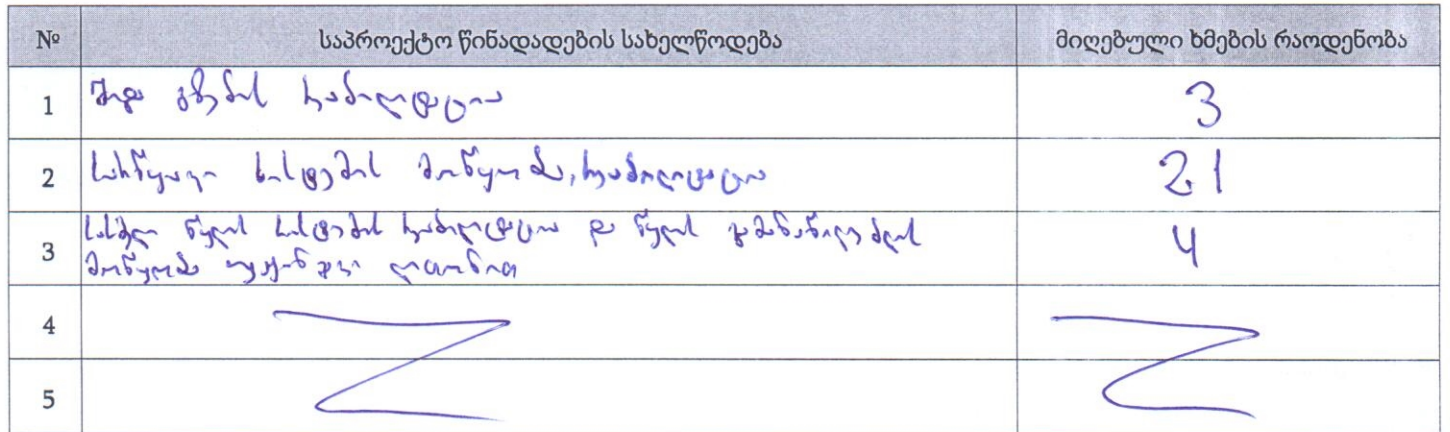 № საპროექტო წინადადების სახელწოდება მიღებული ხმების რაოდენობა
1 შიდა გზების რეაბილიტაცია 3
2 სარწყავი სისტემის მოწყობა, რეაბილიტაცია 21
3 სასმელი წყლის სისტემის რეაბილიტაცია და წყლის გამანაწილებლის 4
მოწყობა
4
5